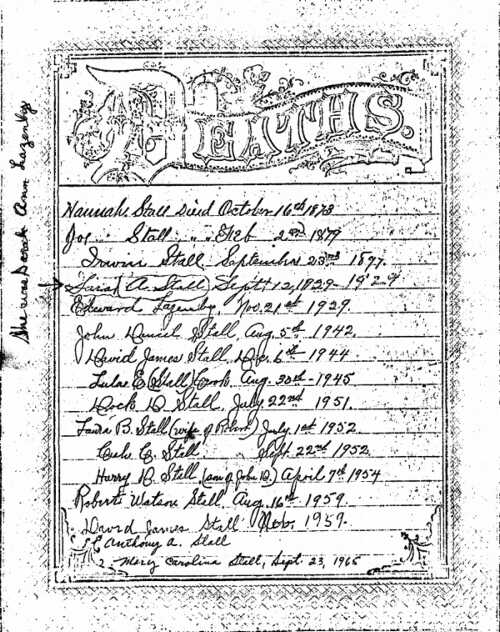 DEATHS.
Hannah Stall Died October 16th 1873
Joe " Stall " " Feb 2nd 1879
Irwin Stall September 23rd 1897.
A. Stall Sept 12, 1929 1929
Edward Lazenby, Nov. 21st 1929.
John Daniel Stall, Aug. 5th 1942.
David James Stall, Dec. 6th 1944
Lular E. (Stall) Cook Aug. 30th - 1945
Dock D. Stall, July 22nd 1951.
B. Stall (wife of Robert) July 1st 1952
Stall Sept. 22nd 1952
Harry B. Stall (son of John D.) April 9th 1954
Robert Watson Stall Aug. 16th 1959.
David James Stall Nov. 1959.
Anthony A. Stall
Mary Carolina Stall, Sept. 23, 1965
She was Sarah Ann Lazenby